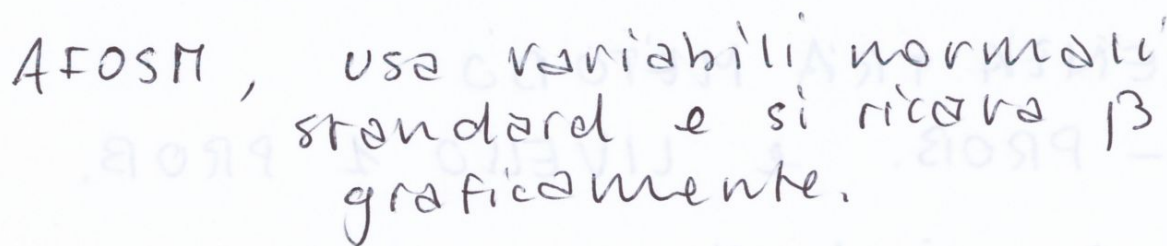 AFOSM, usa variabili normali
standard e si ricava β
graficamente.